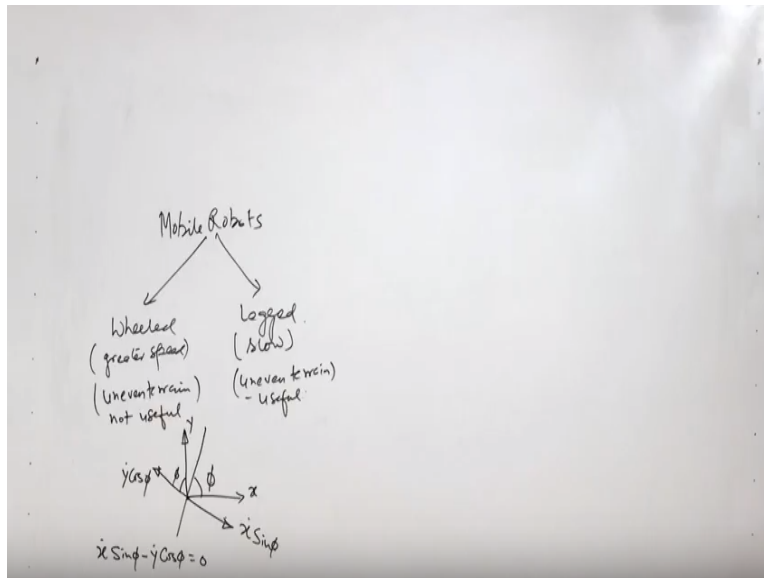 Mobile Robots
Wheeled
(greater speed)
(uneven terrain)
not useful
Legged
(slow)
(uneven terrain)
- useful
Y
ẏCosφ
φ
φ
x
ẋ Sinφ
ẋ Sinφ - ẏ Cosφ = 0